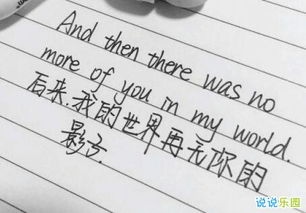 And then there was no
more of you in my world.
后来.我的世界再无你的
影子.
说说乐园